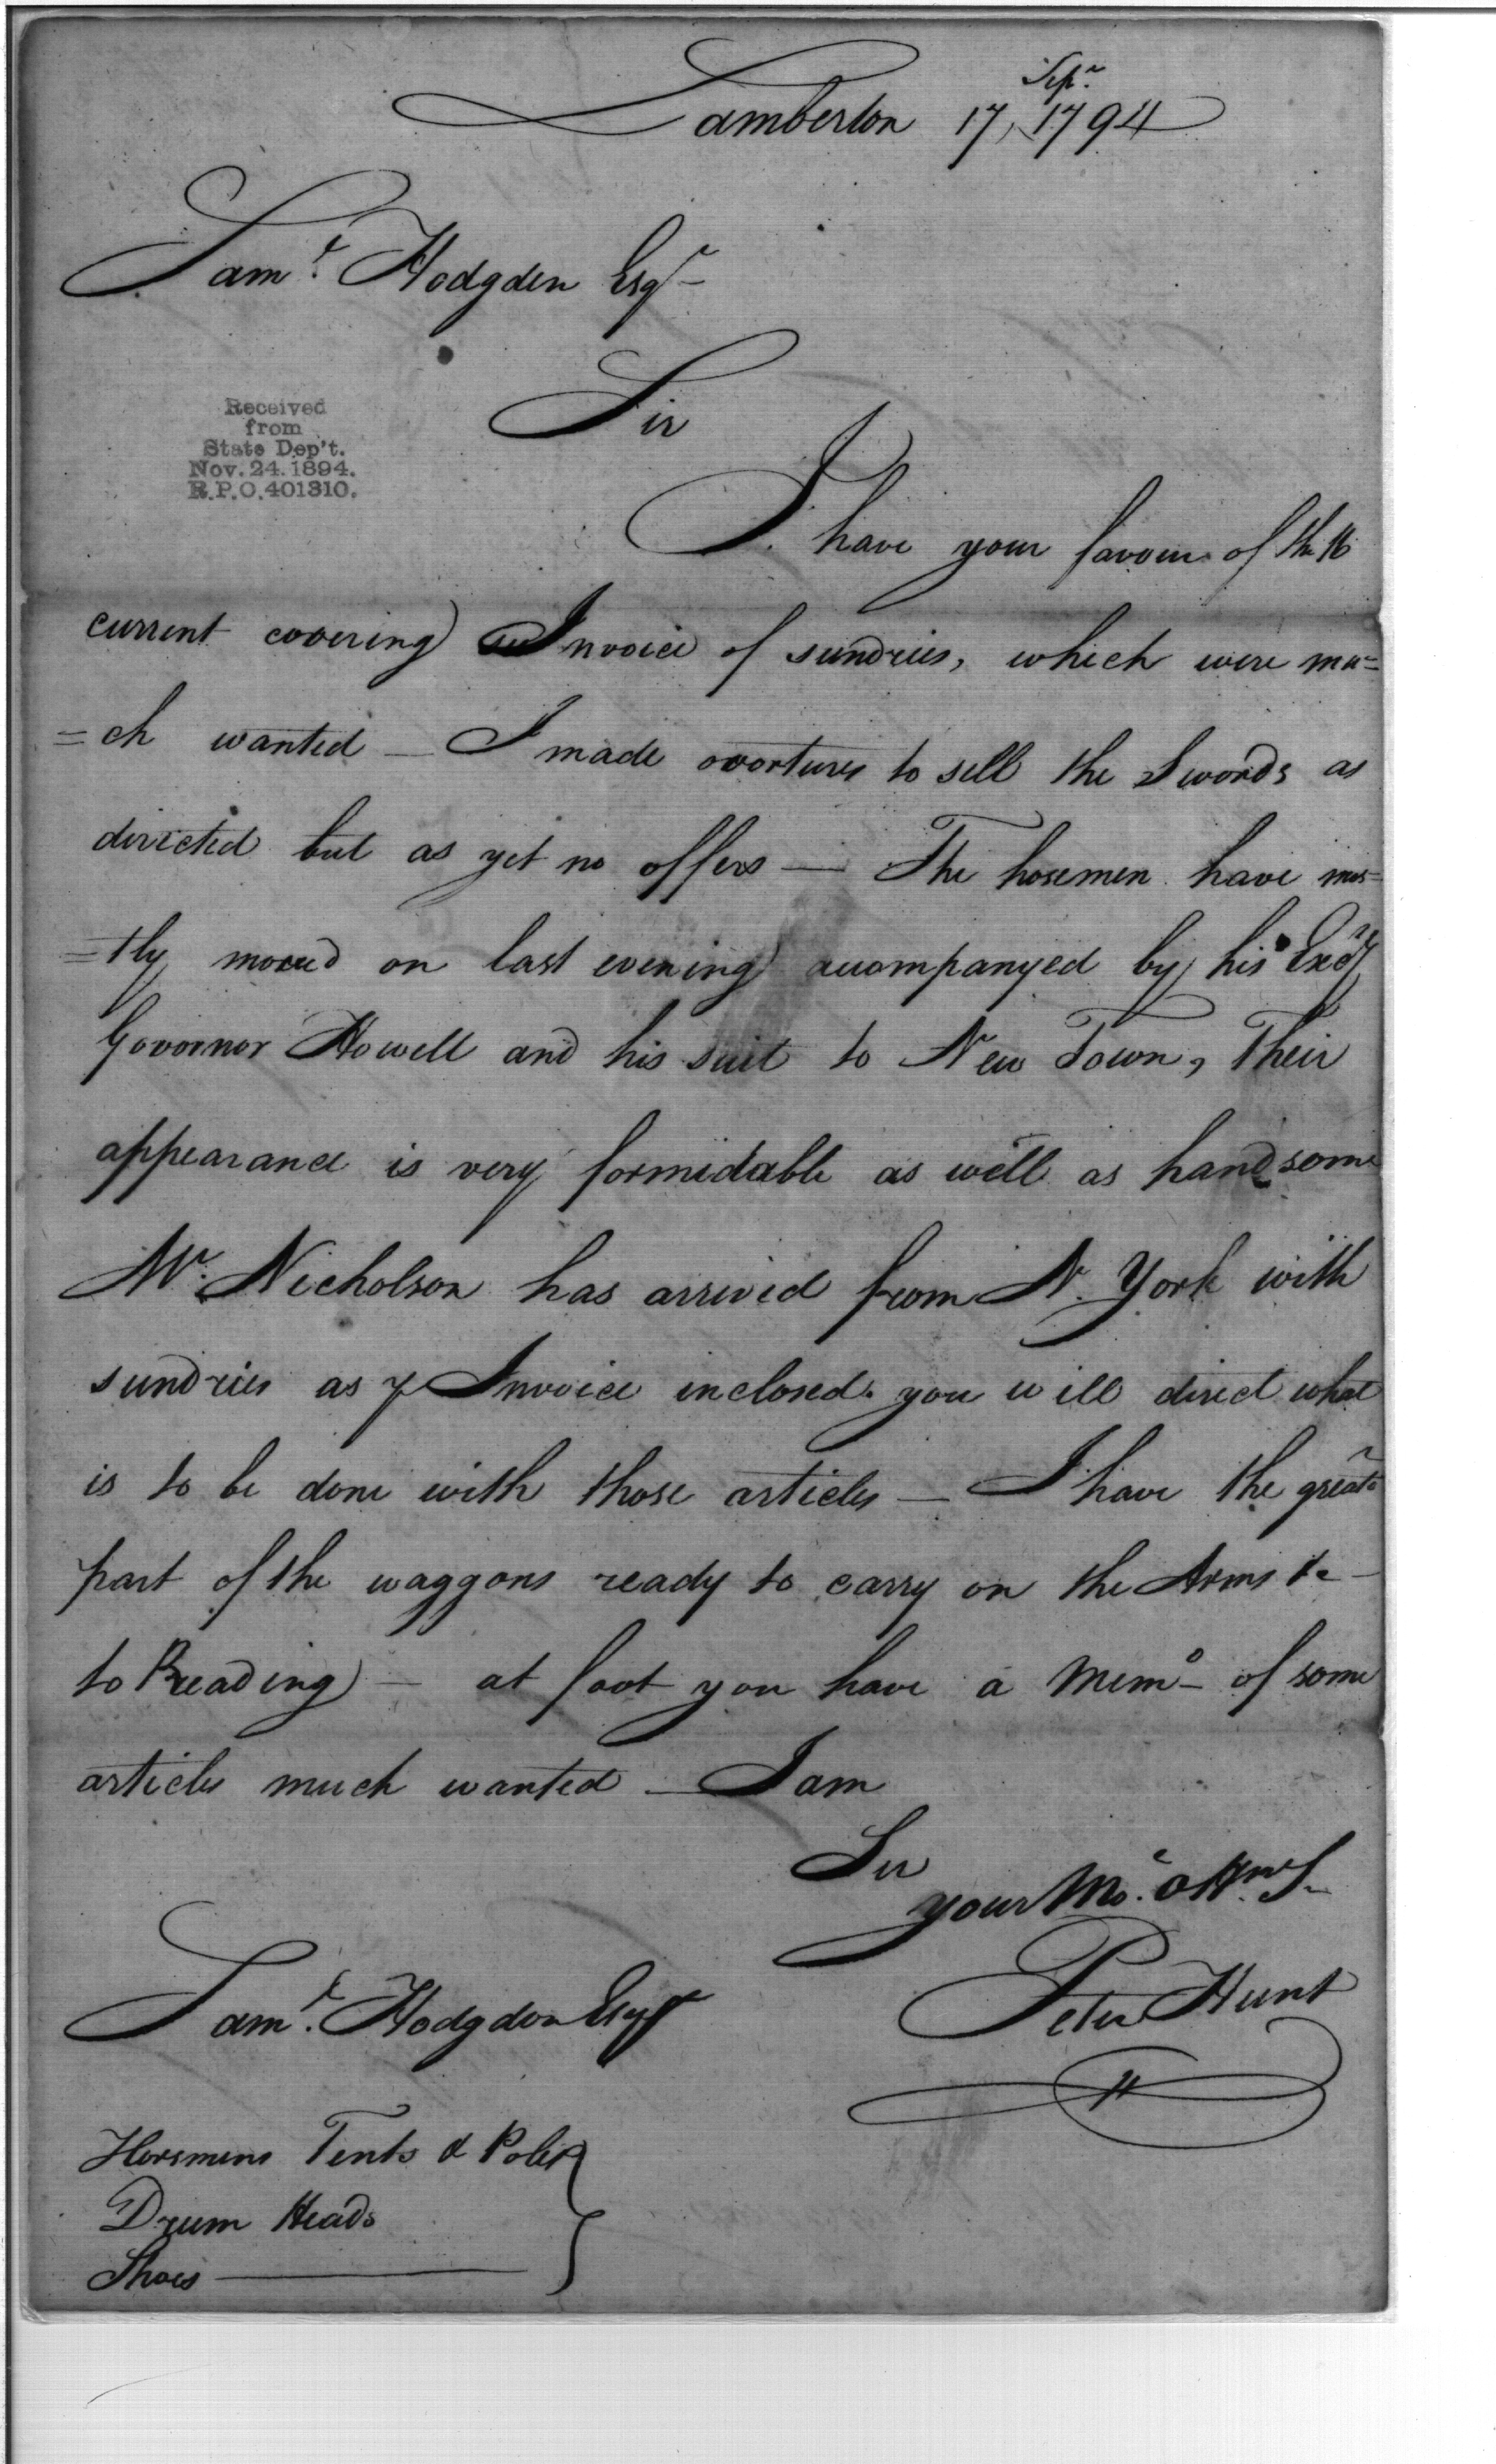 Sepr.
Lamberton 17, 1794
Saml. Hodgden Esqr
Sir
Received
from
State Dep't.
Nov. 24. 1894.
R.P.O. 401310.
I have your favour of the 16
current covering Invoice of sundries, which were mu=
=ch wanted — I made overtures to sell the Swords as
directed but as yet no offers — The hosemen have mos=
=tly moved on last evening accompanyed by his Excy
Governor Howell and his suit to New Town, Their
appearance is very formidable as well as handsome
Mr. Nicholson has arrived from N. York with
sundries as pr Invoice inclosed. you will direct what
is to be done with those articles — I have the greatr
part of the waggons ready to carry on the Arms &c —
to Reading — at foot you have a Memo of some
articles much wanted — I am
Sir
your Mo. O Hm S
Saml. Hodgdon Esqr
Peter Hunt
H
Horsmens Tents & Poles
Drum Heads
Shoes